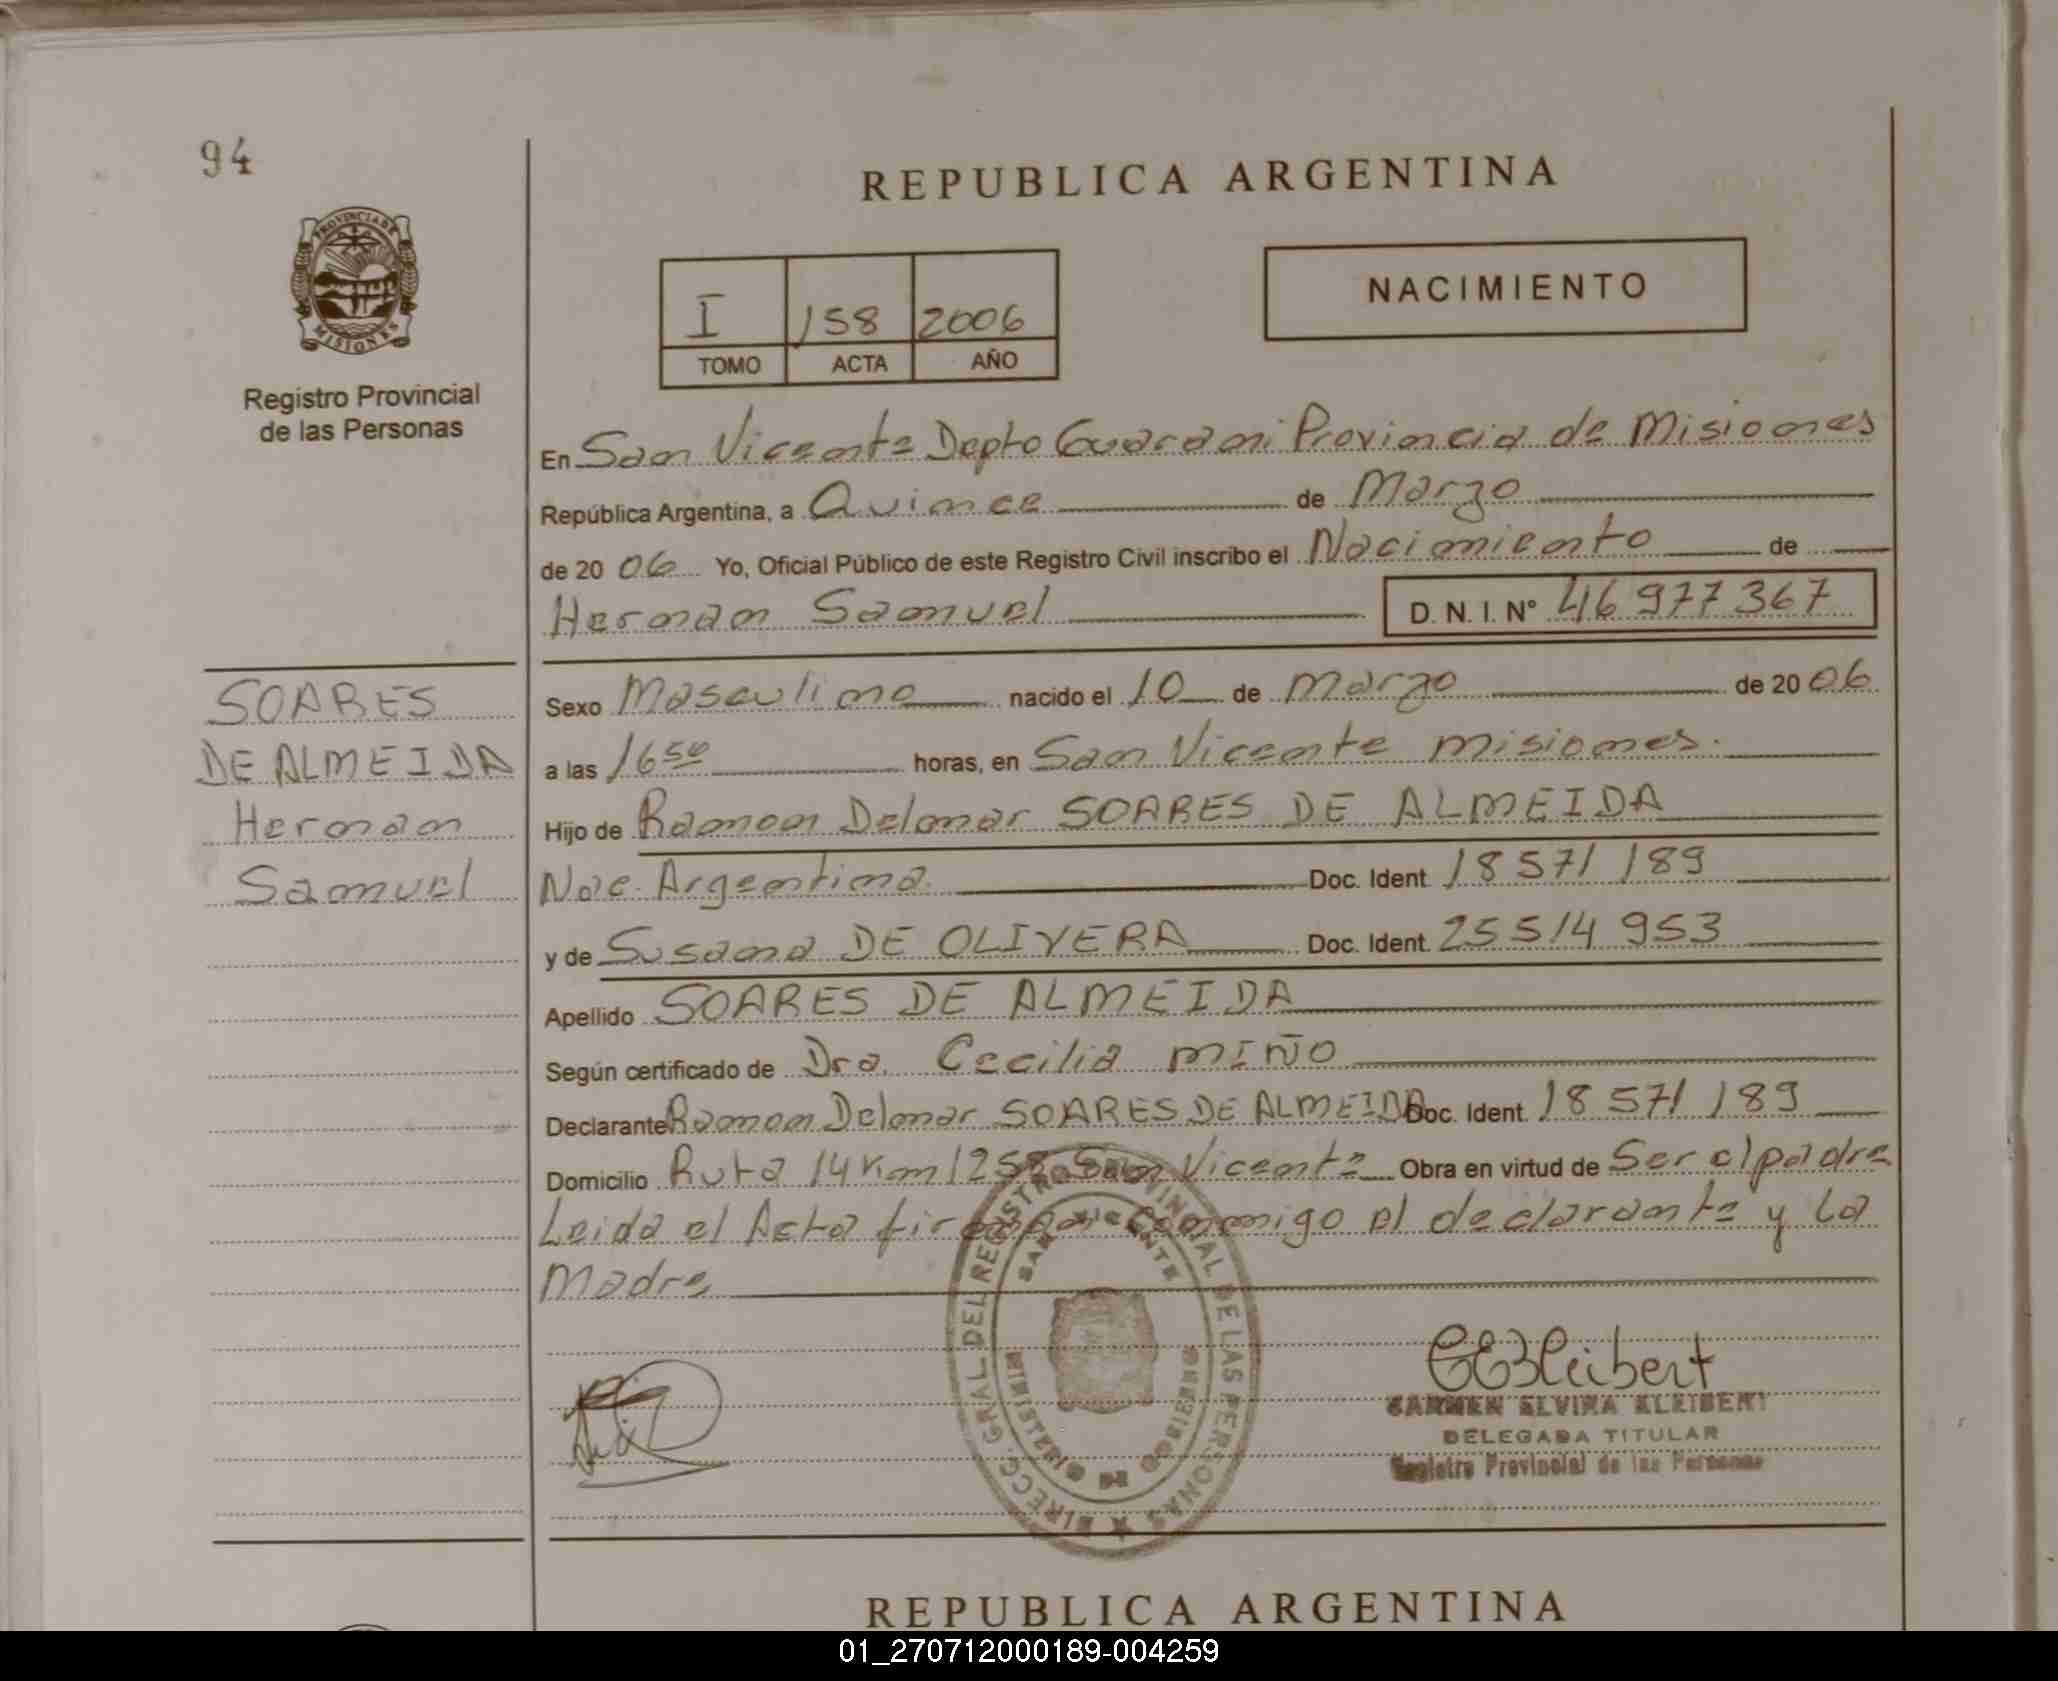 94
REPUBLICA ARGENTINA
PROVINCIA DE
MISIONES
Registro Provincial
de las Personas
I 158 2006
TOMO ACTA AÑO
NACIMIENTO
En San Vicente Depto Guarani Provincia de Misiones
República Argentina, a Quince de Marzo
de 20 06 Yo, Oficial Público de este Registro Civil inscribo el Nacimiento de
Hernan Samuel D. N. I. Nº 46 977 367
SOARES
DE ALMEIDA
Hernan
Samuel
Sexo Masculino nacido el 10 de Marzo de 20 06
a las 16 50 horas, en San Vicente Misiones.
Hijo de Ramon Delmar SOARES DE ALMEIDA
Nac. Argentina. Doc. Ident. 18 571 189
y de Susana DE OLIVERA Doc. Ident. 25 514 953
Apellido SOARES DE ALMEIDA
Según certificado de Dra. Cecilia MIÑO
Declarante Ramon Delmar SOARES DE ALMEIDA Doc. Ident. 18 571 189
Domicilio Ruta 14 Km 1258 San Vicente Obra en virtud de Ser el padre
Leida el Acta firman conmigo el declarante y la
Madre
DIRECC. GRAL DEL REGISTRO PROVINCIAL DE LAS PERSONAS
SAN VICENTE
MINISTERIO DE GOBIERNO
CEKleibert
CARMEN ELVIRA KLEIBERT
DELEGADA TITULAR
Registro Provincial de las Personas
REPUBLICA ARGENTINA
01_270712000189-004259